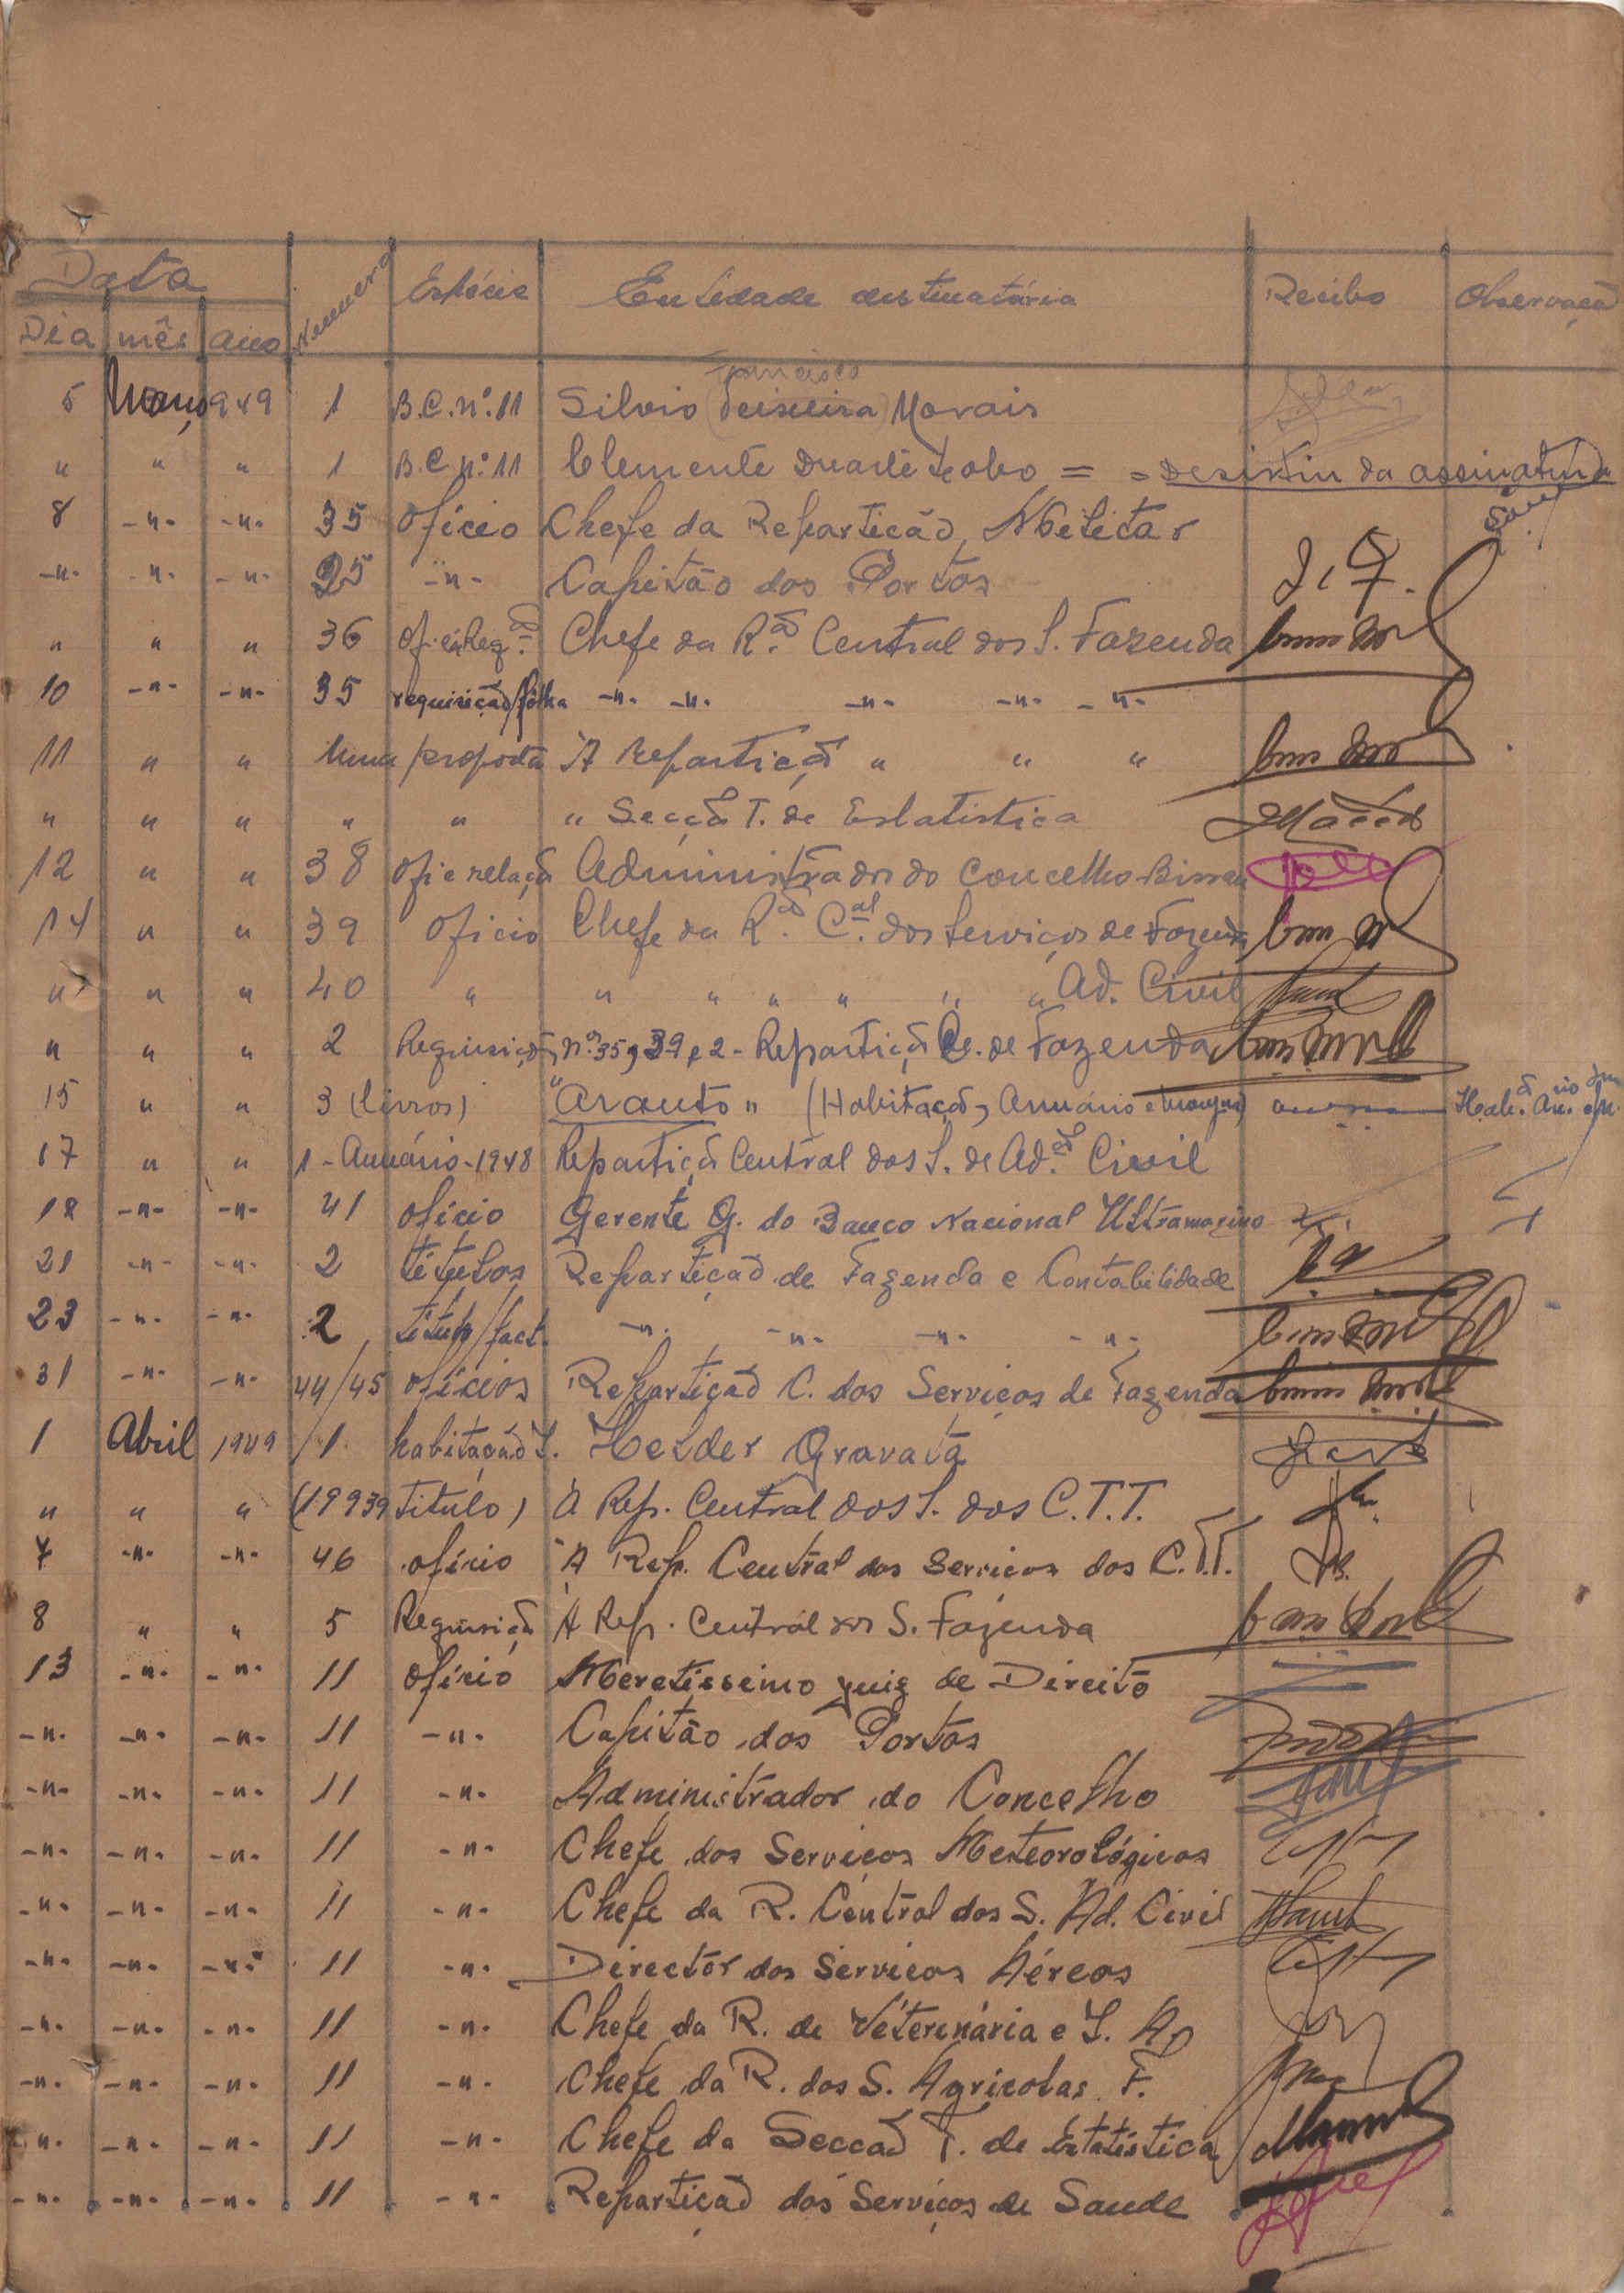 Data Numero Espécie Entidade destinatária Recibo Observação
Dia mês ano
Francisco
5 Março 1949 1 B.C. nº. 11 Silvio (Teixeira) Morais
" " " 1 B.C. nº. 11 Clemente Duarte Lobo = = Desistiu da assinatura
8 -"- -"- 35 Ofício Chefe da Repartição Militar
-"- -"- -"- 35 -"- Capitão dos Portos
" " " 36 Of. e Req.ão Chefe da R.ão Central dos S. Fazenda
10 -"- -"- 35 requisição/fôlha -"- -"- -"- -"- -"-
11 " " Uma proposta À Repartição " " "
" " " " " " Secção T. de Estatistica
12 " " 38 Of. e relação Administrador do Concelho Bissau
14 " " 39 Oficio Chefe da R.ão C.al dos Serviços de Fazenda
" " " 40 " " " " " " " Ad. Civil
" " " 2 Requisição, nº 35, 39 e 2 - Repartição Ce. de Fazenda
15 " " 3 (livros) "Arauto" (Habitação, Anuário e
17 " " 1 - Anuário - 1948 Repartição Central dos S. de Ad.ão Civil
18 -"- -"- 41 ofício Gerente G. do Banco Nacional Ultramarino
21 -"- -"- 2 títulos Repartição de Fazenda e Contabilidade
23 -"- -"- 2 título/fact. -"- -"- -"- -"-
31 -"- -"- 44/45 ofícios Repartição C. dos Serviços de Fazenda
1 Abril 1949 1 habitação S. Helder Gravata
" " " (19939 Titulo) À Rep. Central dos S. dos C.T.T.
7 -"- -"- 46 ofício À Rep. Central dos Serviços dos C.T.T.
8 " " 5 Requisição À Rep. Central dos S. Fazenda
13 -"- -"- 11 Ofício Meretíssimo Juiz de Direito
-"- -"- -"- 11 -"- Capitão dos Portos
-"- -"- -"- 11 -"- Administrador do Concelho
-"- -"- -"- 11 -"- Chefe dos Serviços Meteorológicos
-"- -"- -"- 11 -"- Chefe da R. Central dos S. Ad. Civil
-"- -"- -"- 11 -"- Director dos Serviços Aéreos
-"- -"- -"- 11 -"- Chefe da R. de Veterinária e I. A
-"- -"- -"- 11 -"- Chefe da R. dos S. Agricolas F.
-"- -"- -"- 11 -"- Chefe da Secção T. de Estatística
-"- -"- -"- 11 -"- Repartição dos Serviços de Saude